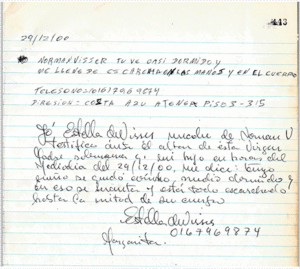 443
29/12/00
NORMAN VISSER TUVE CASI DORMIDO Y
ME LLENE DE ESCARCHA EN LAS MANOS Y EN EL CUERPO
TELEFONO 01617969874
DIRECION - COSTA AZU ATENEA PISO 3 - 315
Yo, Estella de Visser de Norman V
testifico ante el altar de esta Virgen
Madre y mi hijo en horas del
Mediodia del 29/12/00, me dice: tengo
sueño se quedó medio dormido y
en eso se levanta y está todo escarchado
hasta la mitad de su cuerpo
Estella de Visser
0167969874
Margarita.